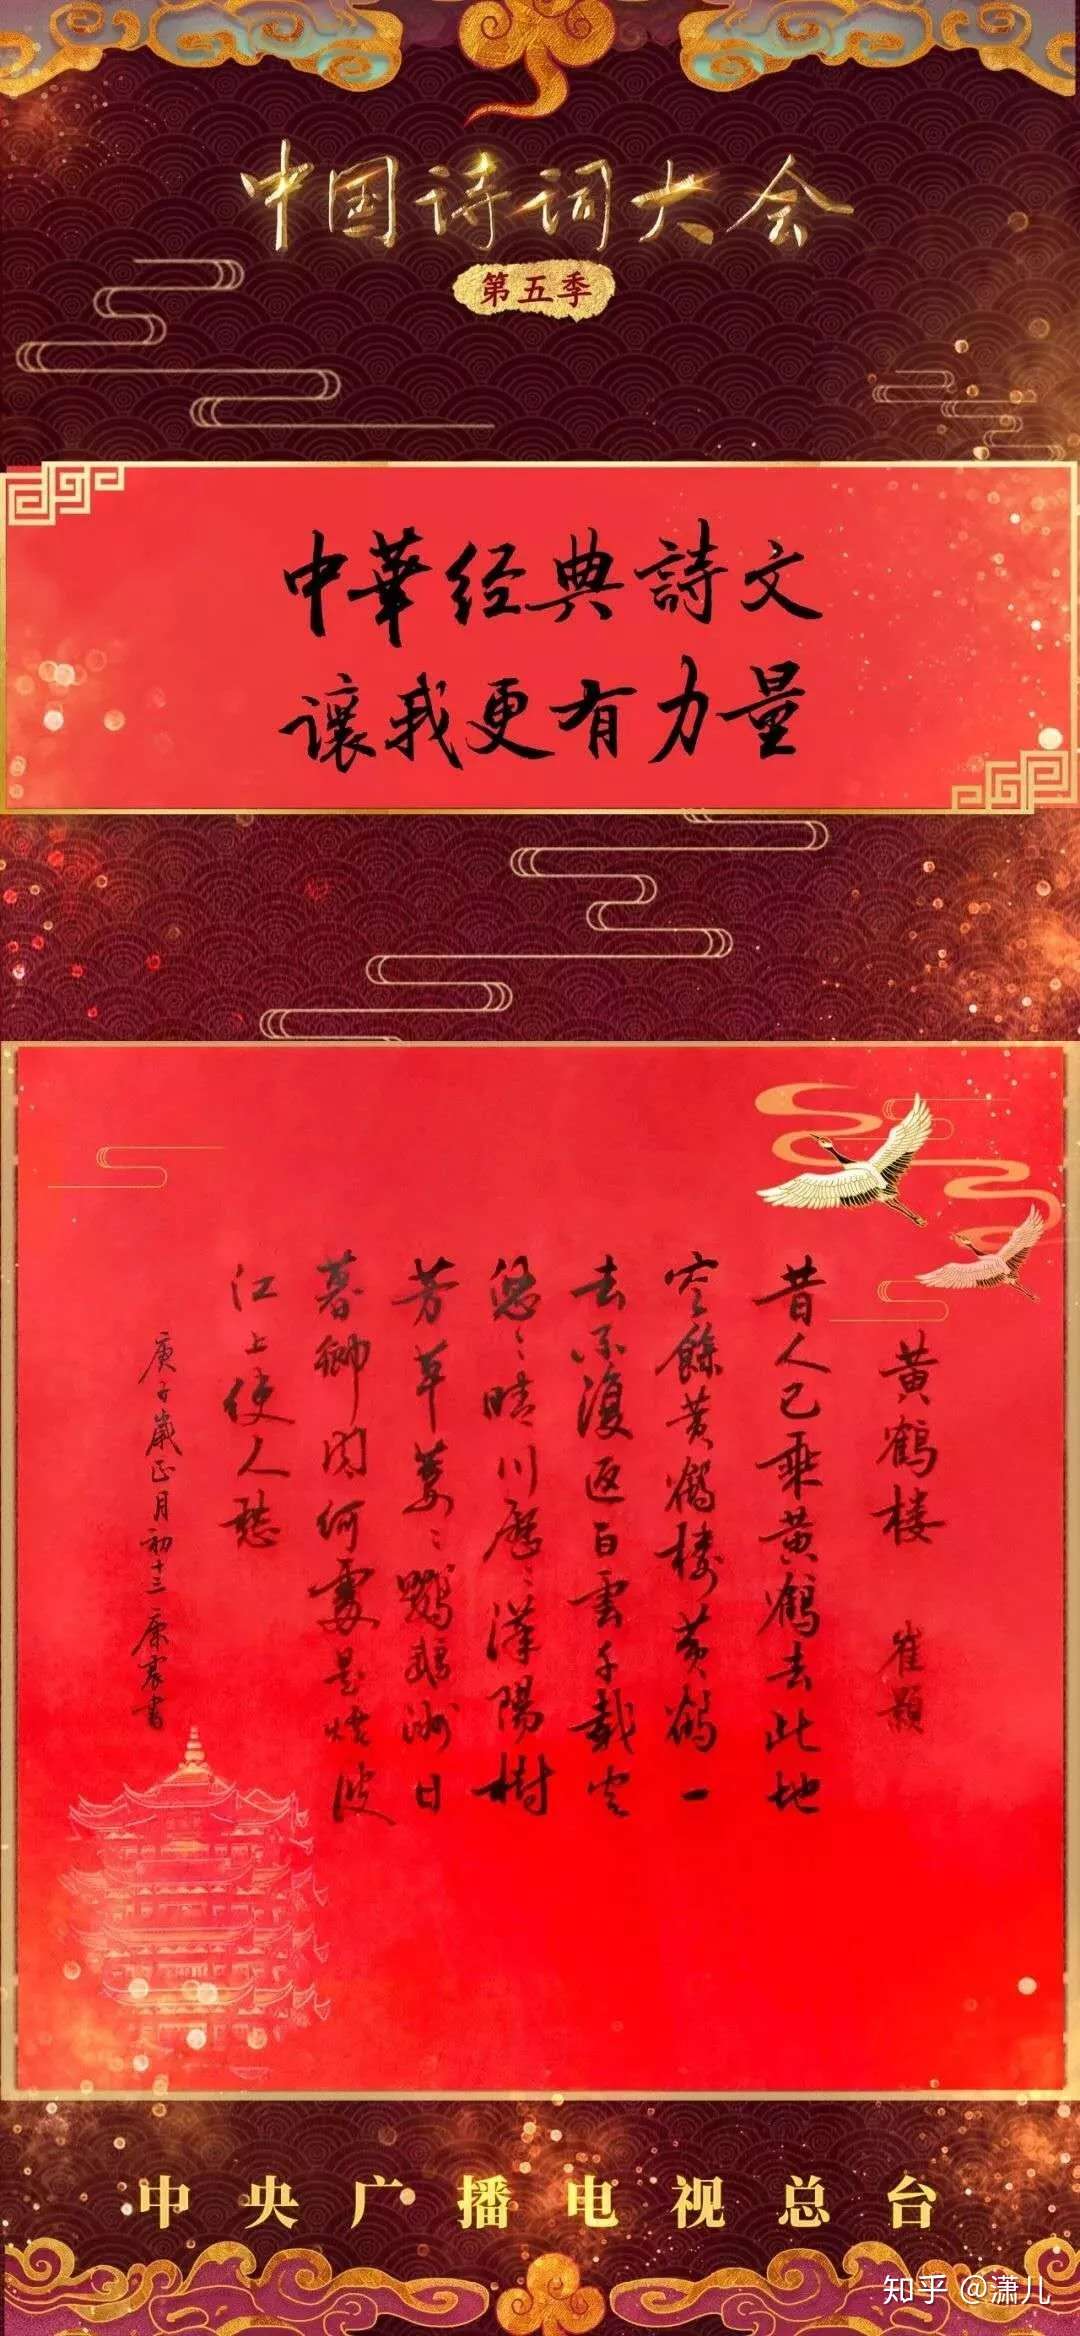 中国诗词大会
第五季
中華经典詩文
讓我更有力量
黄鶴楼 崔颢
昔人已乘黄鶴去此地
空餘黄鶴楼黄鶴一
去不復返白雲千載空
悠々晴川歷々漢陽樹
芳草萋々鸚鵡洲日
暮鄉関何處是烟波
江上使人愁
庚子歲正月初十三康震書
中央广播电视总台
知乎 @潇儿